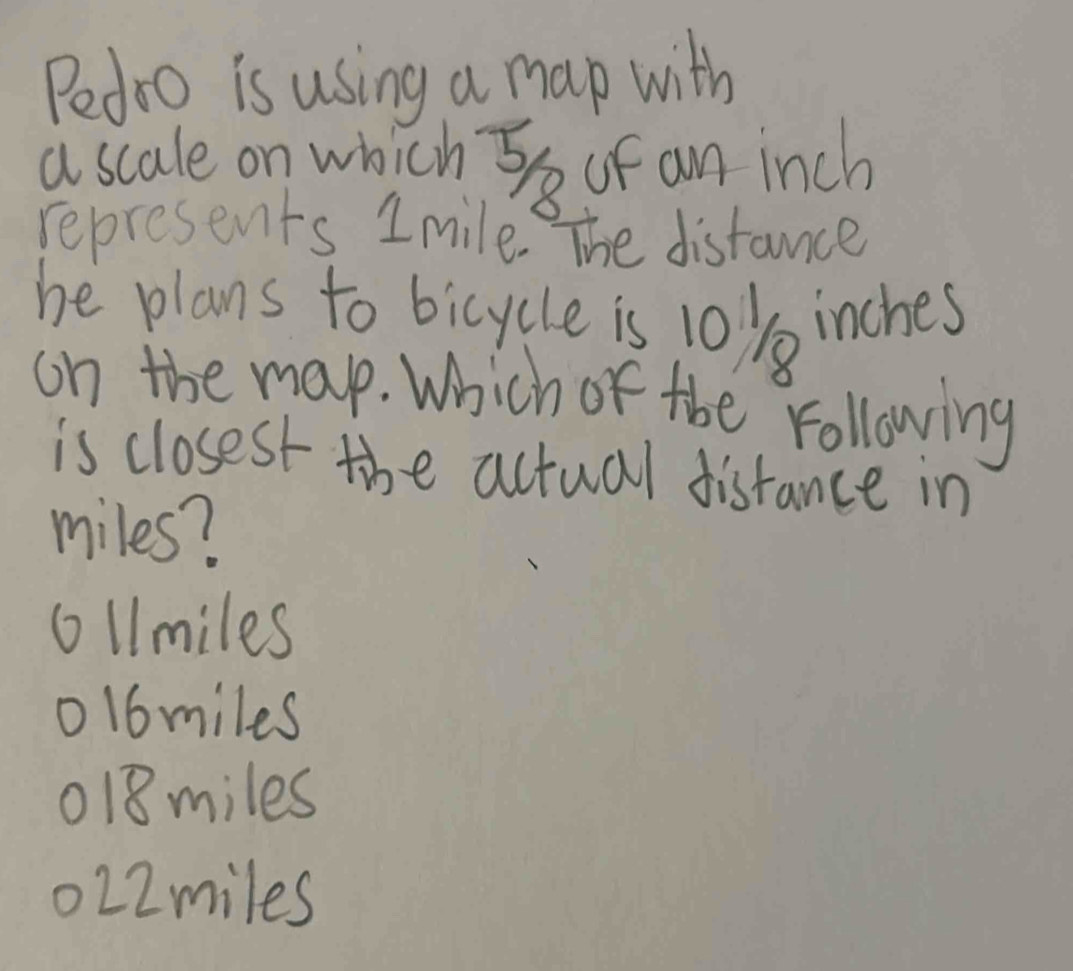 Pedro is using a map with
a scale on which 5/8 of an inch
represents 1 mile. The distance
he plans to bicycle is 10 1/8 inches
on the map. Which of the Following
is closest the actual distance in
miles?
○ 11 miles
○ 16 miles
○ 18 miles
○ 22 miles